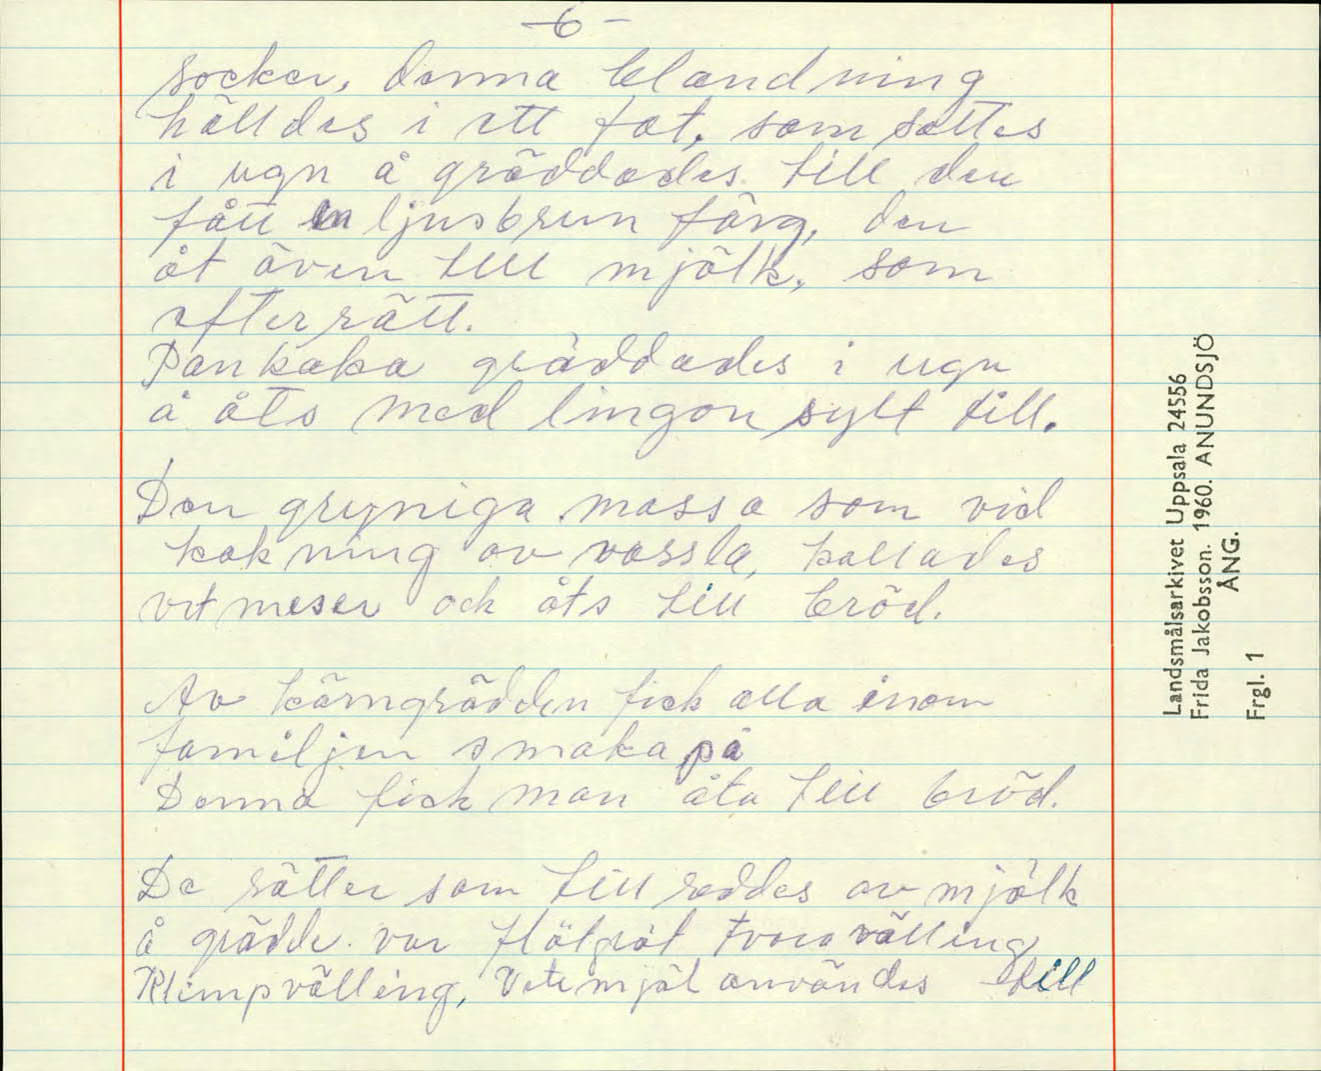 -6-
socker, denna blandning
hälldes i ett fat, som sattes
i ugn å gräddades till den
fått en ljusbrun färg, den
åt även till mjölk, som
efterrätt.
Pankaka gräddades i ugn
å åts med lingonsylt till.
Den gryniga massa som vid
kokning av vassla, kallades
vitmeser och åts till bröd.
Av kärngrädden fick alla inom
familjen smaka på
Denna fick man äta till bröd.
De rätter som tillreddes av mjölk
å grädde var flötgröt tvaravälling
Klimpvälling, Vetemjöl användes till
Landsmålsarkivet Uppsala 24556
Frida Jakobsson. 1960. ANUNDSJÖ
ÅNG.
Frgl. 1